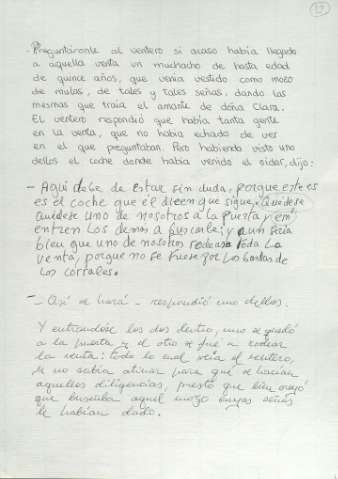 - Preguntáronle al ventero si acaso había llegado
a aquella venta un muchacho de hasta edad
de quince años, que venía vestido como mozo
de mulas, de tales y tales señas, dando las
mesmas que traía el amante de doña Clara.
El ventero respondió que había tanta gente
en la venta, que no había echado de ver
en el que preguntaban. Pero habiendo visto uno
dellos el coche donde había venido el oidor, dijo:
- Aquí debe de estar sin duda, porque este es
es el coche que él dicen que sigue. Quédese
quédese uno de nosotros a la puerta y em
entren los demás a buscarle; y aun sería
bien que uno de nosotros rodease toda la
venta, porque no se fuese por las bardas de
los corrales.
- Así se hará - respondió uno dellos.
Y entrándose los dos dentro, uno se quedó
a la puerta y el otro se fue a rodear
la venta: todo lo cual veía el ventero,
y no sabía atinar para qué se hacían
aquellas diligencias, puesto que bien creyó
que buscaban aquel mozo cuyas señas
le habían dado.